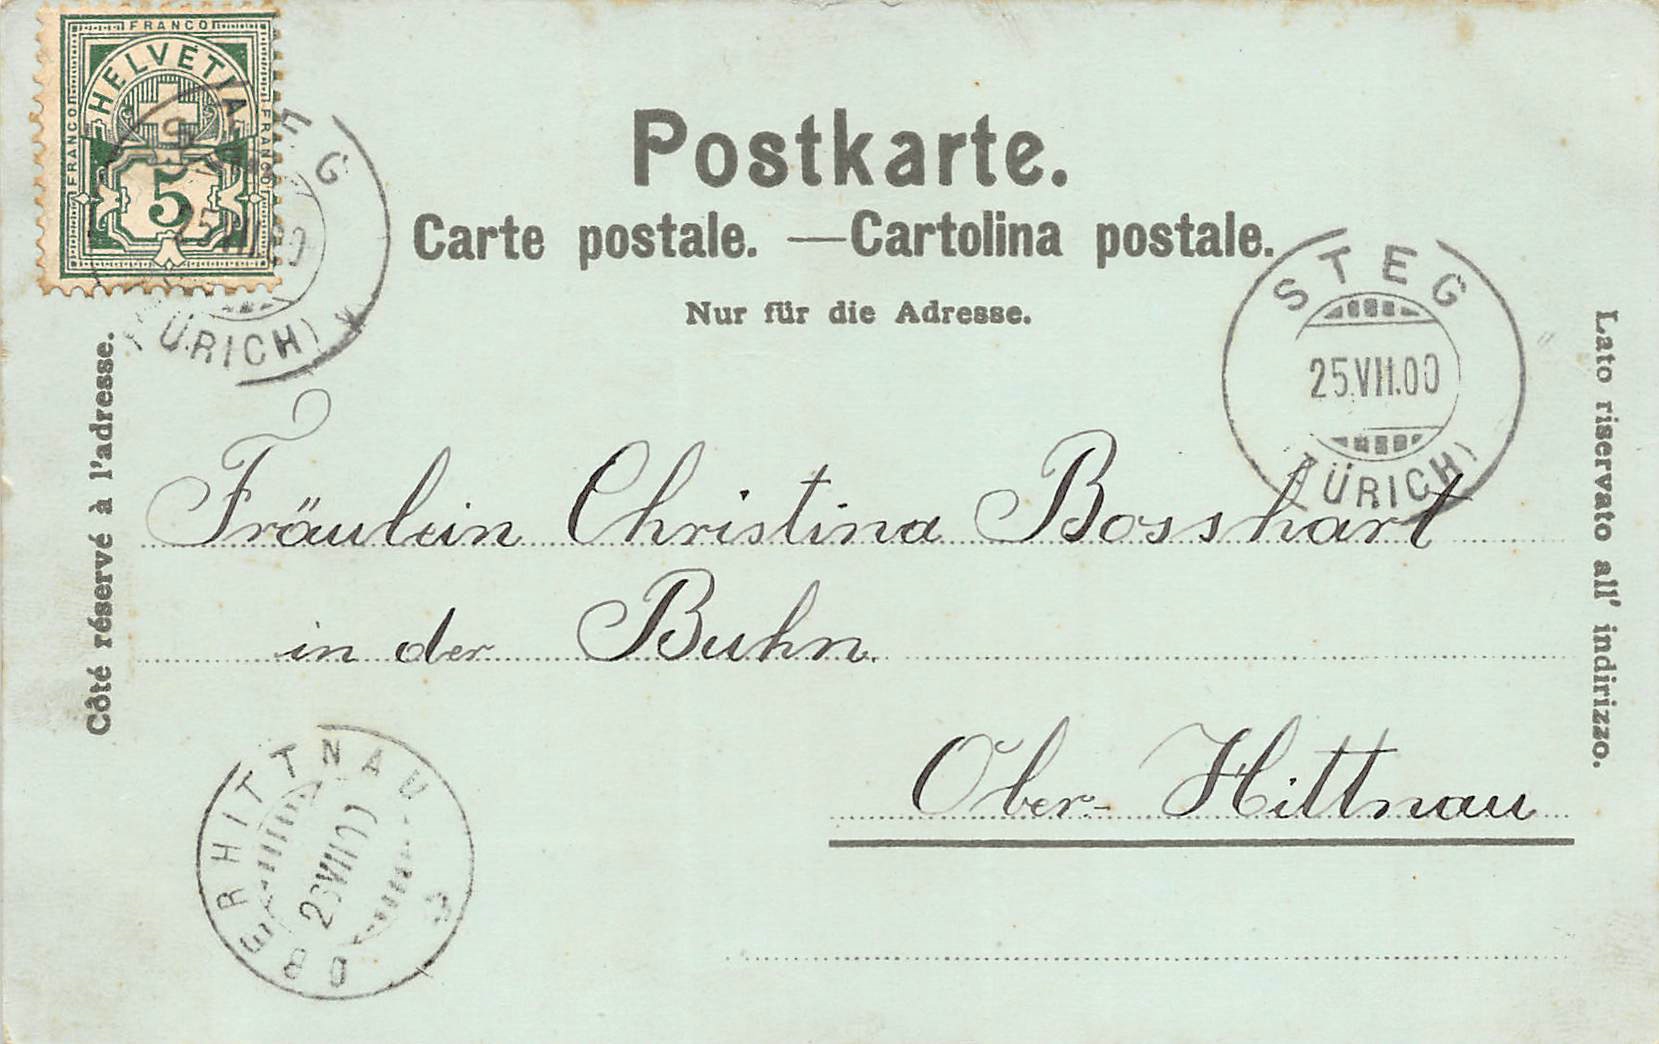 FRANCO
HELVETIA
FRANCO
FRANCO
5
Postkarte.
Carte postale. — Cartolina postale.
Nur für die Adresse.
STEG
25.VII.00
(ZÜRICH)
STEG
25.VII.00
(ZÜRICH)
Côté réservé à l'adresse.
Lato riservato all' indirizzo.
Fräulein Christina Bosshart
in der Buhn.
Ober-Hittnau
OBERHITTNAU
26.VII.00